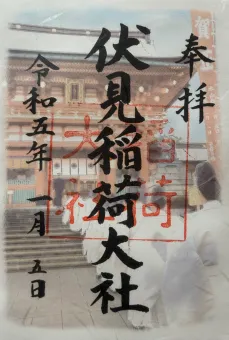 奉拝
伏見稲荷大社
令和五年 一月 五日
賀